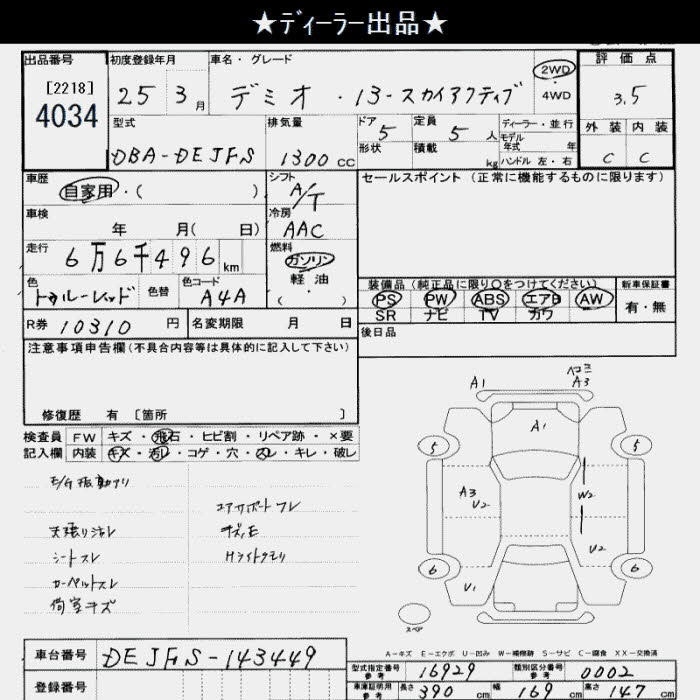 ★ディーラー出品★
出品番号
[2218]
4034
初度登録年月
25 3月
車名・グレード
デミオ ・ 13-スカイアクティブ
2WD
4WD
評価点
3.5
外装 内装
C C
型式
DBA-DEJFS
排気量
1300 cc
ドア 5
形状
定員 5 人
積載 kg
ディーラー・並行
モデル年式 年
ハンドル 左・右
車歴
自家用・( )
シフト
A/T
セールスポイント (正常に機能するものに限ります)
車検
年 月( 日)
冷房
AAC
走行
6万6千496 km
燃料
ガソリン
軽油
( )
色
トゥルーレッド
色替
色コード
A4A
装備品 (純正品に限り○をつけてください)
PS PW ABS エアB AW
SR ナビ TV カワ
新車保証書
有・無
R券 10310 円
名変期限 月 日
後日品
注意事項申告欄(不具合内容等は具体的に記入して下さい)
修復歴 有 [箇所 ]
検査員記入欄
FW キズ・飛石・ヒビ割・リペア跡・×要
内装 キズ・汚レ・コゲ・穴・スレ・キレ・破レ
E/G振動アリ
天張り汚レ
シートスレ
カーペットスレ
荷室キズ
エアサポートフレ
Hライトクモリ
A1
ヘコミ
A3
A1
5 5
A3
U2
W2
U2
6 6
U1
スペア
A-キズ E-エクボ U-凹み W-補修跡 S-サビ C-腐食 XX-交換済
車台番号
DEJFS-143449
登録番号
型式指定番号 参考
16929
類別区分番号 参考
0002
車庫証明用 参考
長さ 390 cm
幅 169 cm
高さ 147 cm